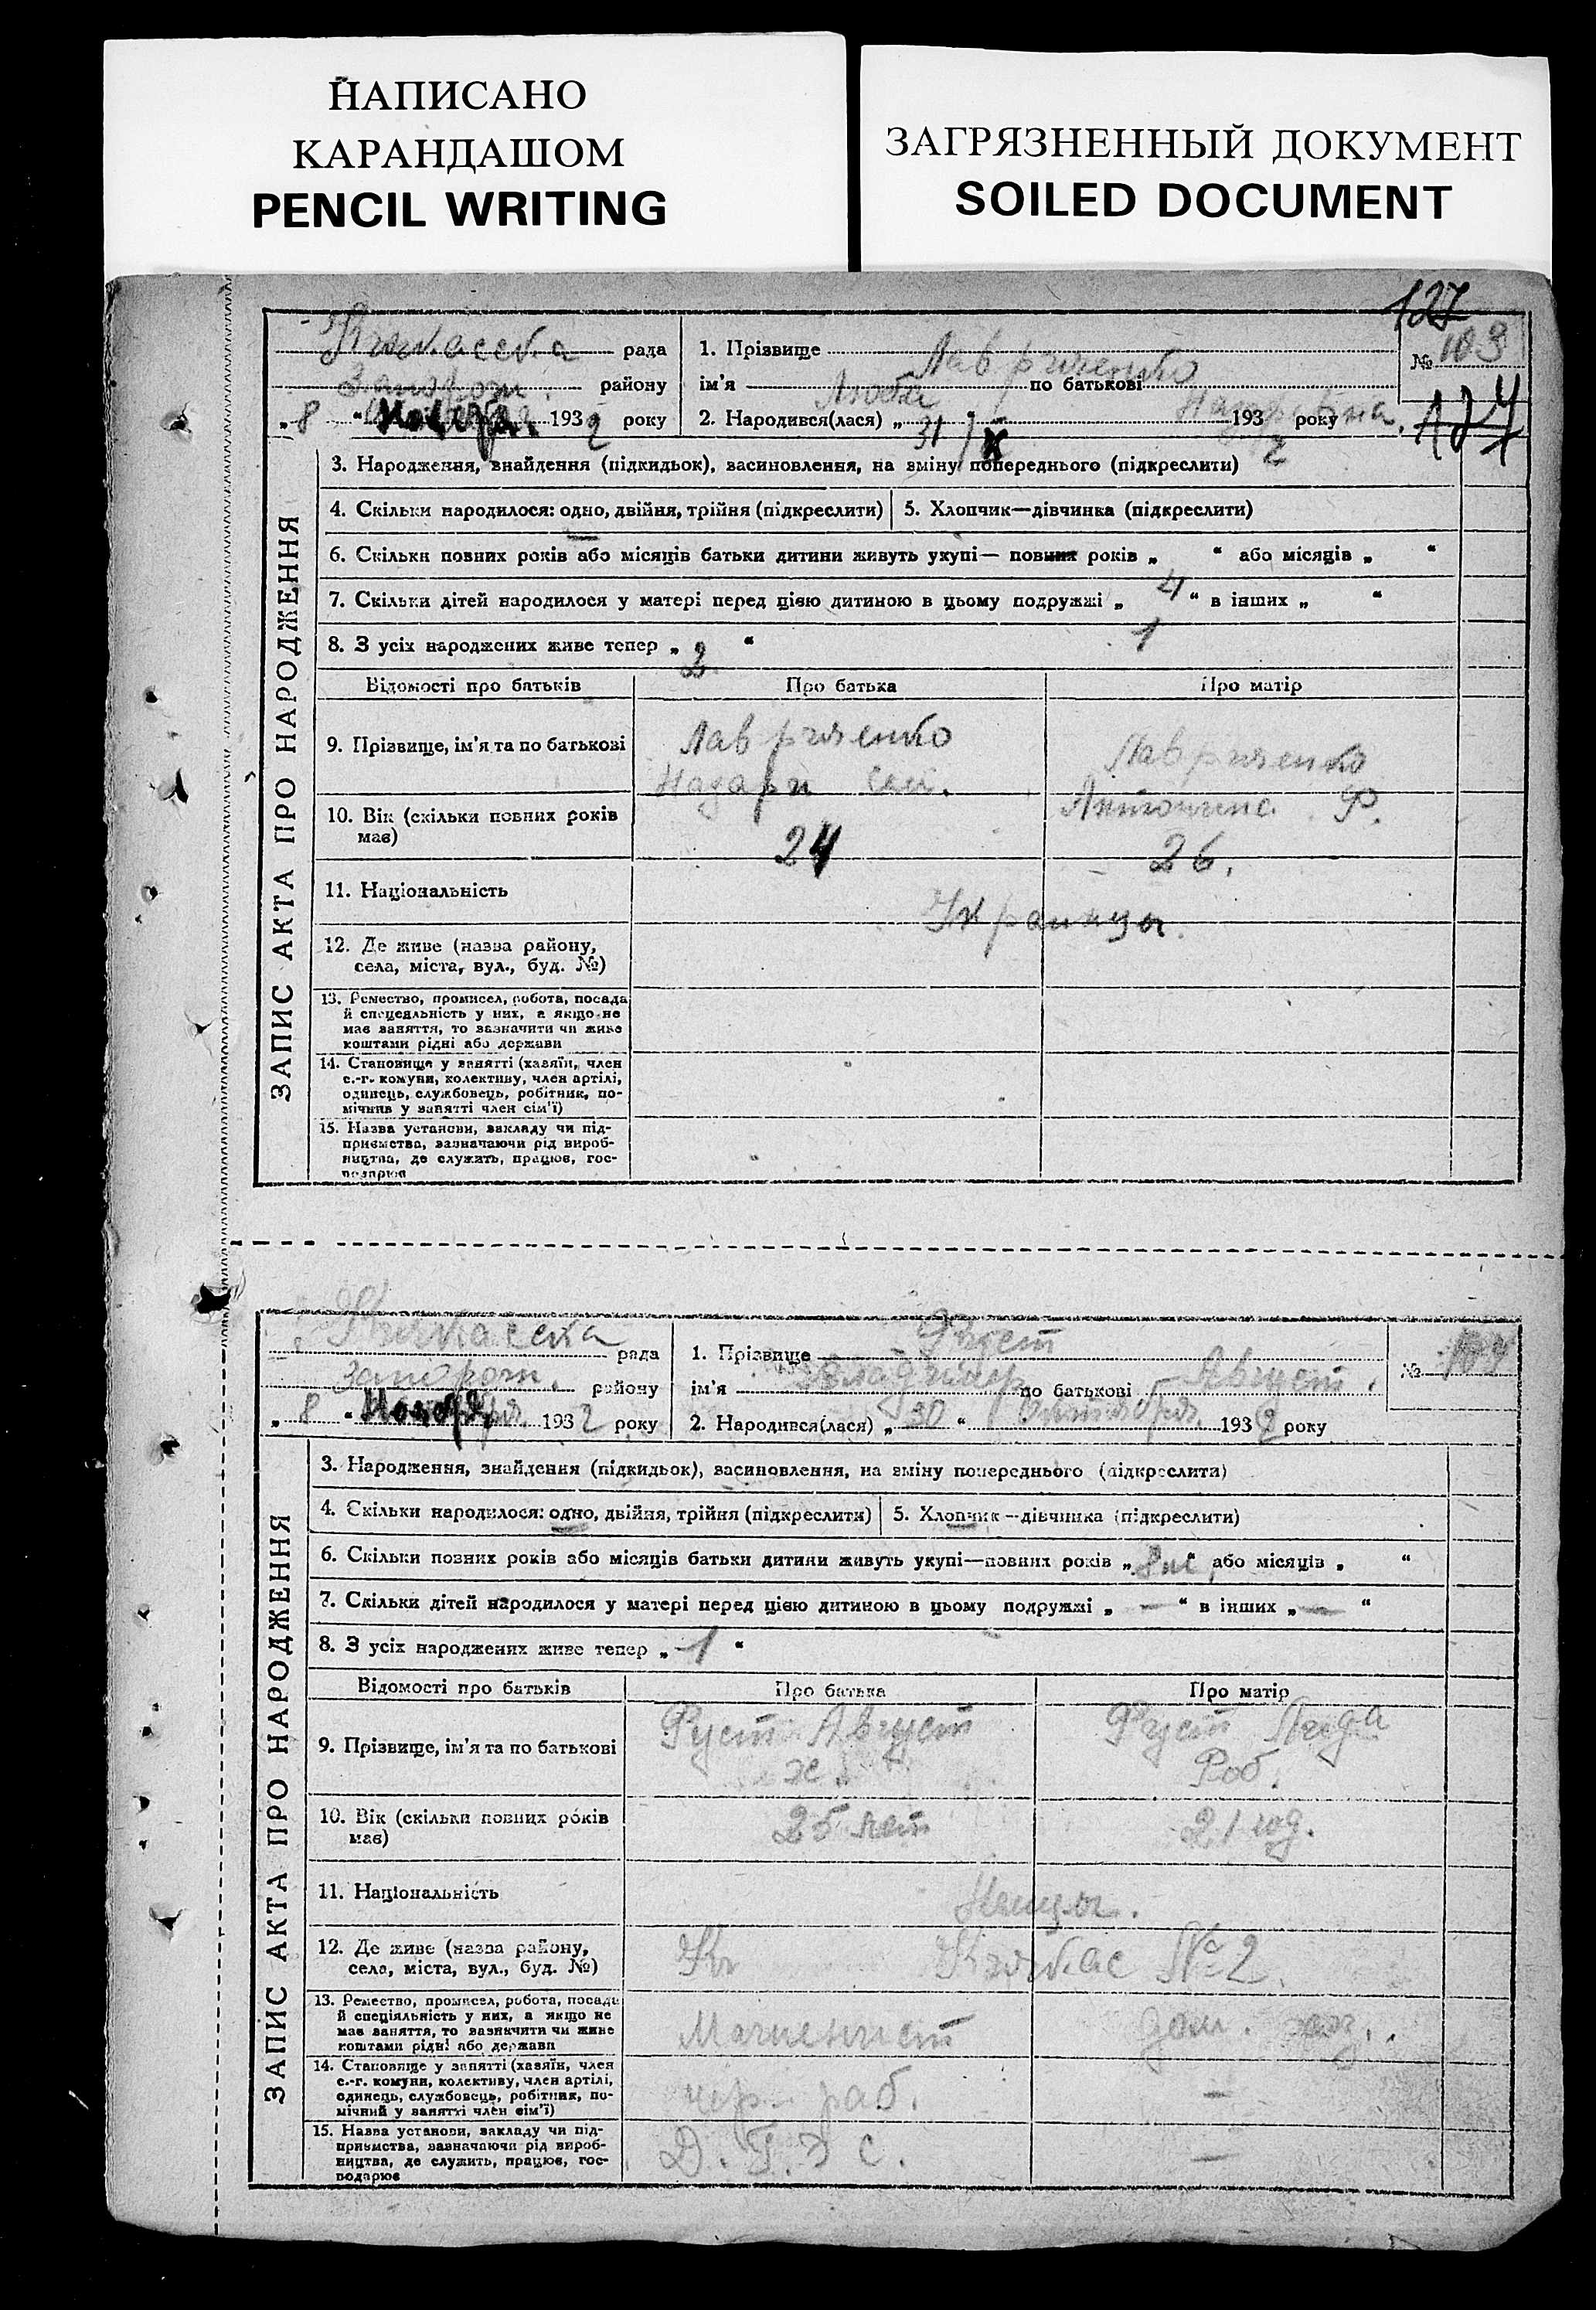 НАПИСАНО
КАРАНДАШОМ
PENCIL WRITING
ЗАГРЯЗНЕННЫЙ ДОКУМЕНТ
SOILED DOCUMENT
127
Кичкасска рада
Запорож. району
„ 8 “ Ноября 1932 року
1. Прізвище Лавриченко
ім'я Люба по батькові Назаровна.
2. Народився(лася) „ 31 “ X 1932 року
№ 103
127
ЗАПИС АКТА ПРО НАРОДЖЕННЯ
3. Народження, знайдення (підкидьок), васиновлення, на зміну попереднього (підкреслити)
4. Скільки народилося: одно, двійня, трійня (підкреслити) 5. Хлопчик—дівчинка (підкреслити)
6. Скільки повних років або місяців батьки дитини живуть укупі— повних років „ “ або місяців „ “
7. Скільки дітей народилося у матері перед цією дитиною в цьому подружжі „ 4 “ в інших „ “
1
8. З усіх народжених живе тепер „ 2 “
Відомості про батьків Про батька Про матір
9. Прізвище, ім'я та по батькові Лавриченко Лавриченко
Назари Антонина Ф.
10. Вік (скільки повних років має) 24 26.
11. Національність Украинцы.
12. Де живе (назва району,
села, міста, вул., буд. №)
13. Ремество, промисел, робота, посада
й спеціяльність у них, а якщо не
має заняття, то зазначити чи живе
коштами рідні або держави
14. Становище у занятті (хазяїн, член
с.-г. комуни, колективу, член артілі,
одинець, службовець, робітник, по-
мічник у занятті член сім'ї)
15. Назва установи, закладу чи під-
приємства, зазначаючи рід вироб-
ництва, де служить, працює, гос-
подарює
Кичкасска рада
Запорож. району
„ 8 “ Ноября 1932 року
1. Прізвище Руст
ім'я Владимир по батькові Август.
2. Народився(лася) „ 30 “ Октября 1932 року
№ 104
ЗАПИС АКТА ПРО НАРОДЖЕННЯ
3. Народження, знайдення (підкидьок), васиновлення, на зміну попереднього (підкреслити)
4. Скільки народилося: одно, двійня, трійня (підкреслити) 5. Хлопчик—дівчинка (підкреслити)
6. Скільки повних років або місяців батьки дитини живуть укупі—повних років „ “ або місяців „ “
7. Скільки дітей народилося у матері перед цією дитиною в цьому подружжі „ — “ в інших „ — “
8. З усіх народжених живе тепер „ 1 “
Відомості про батьків Про батька Про матір
9. Прізвище, ім'я та по батькові Руст Август Руст Лида
Роб.
10. Вік (скільки повних років має) 25 лет 21 год.
11. Національність Немцы.
12. Де живе (назва району,
села, міста, вул., буд. №) Кичкас № 2.
13. Ремество, промисел, робота, посада
й спеціяльність у них, а якщо не
має заняття, то зазначити чи живе
коштами рідні або держави Машинист дом. хоз.
14. Становище у занятті (хазяїн, член
с.-г. комуни, колективу, член артілі,
одинець, службовець, робітник, по-
мічний у занятті член сім'ї) чер. раб. —
15. Назва установи, закладу чи під-
приємства, зазначаючи рід вироб-
ництва, де служить, працює, гос-
подарює Д. Г. Э С. —